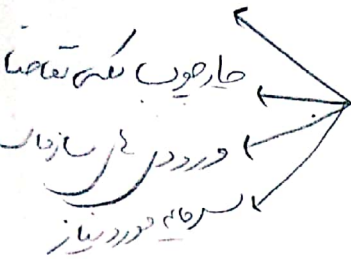 چارچوب کلی تقاضا
ورودی های سازمان
سرمایه مورد نیاز